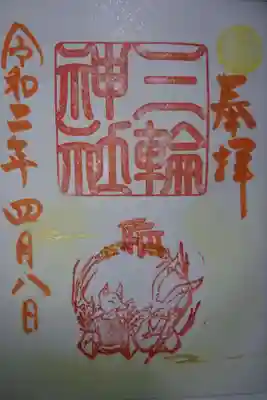 奉拝
三輪
神社
令和二年 四月八日